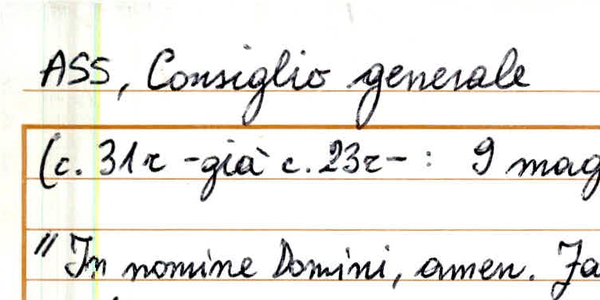 ASS, Consiglio generale
(c. 31r - già c. 23r - : 9 mag
"In nomine Domini, amen. Ja